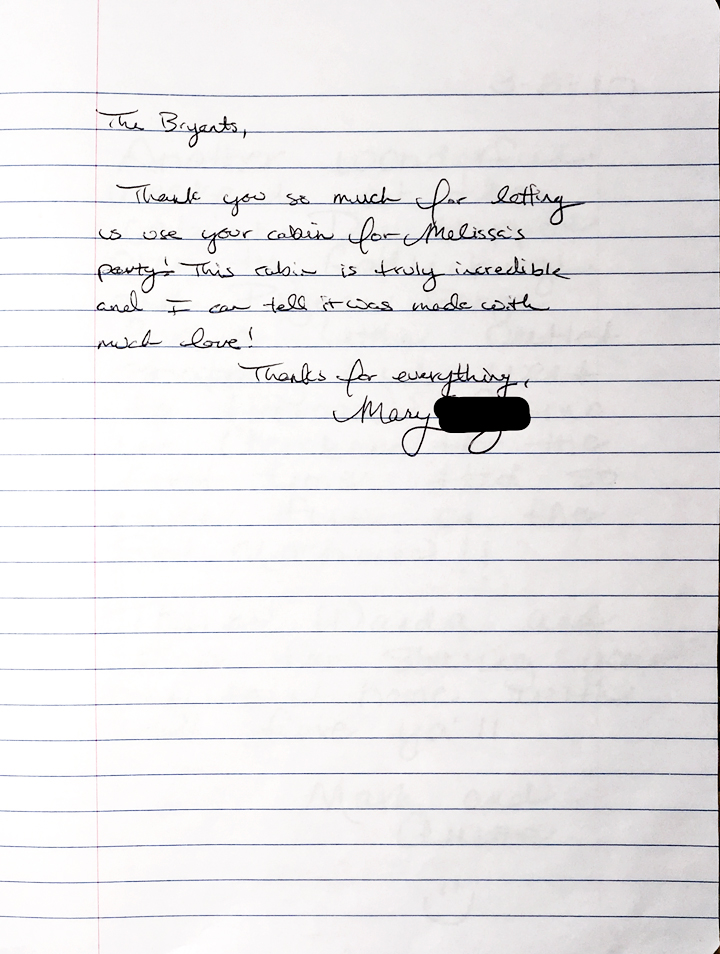 The Bryants,
Thank you so much for letting
us use your cabin for Melissa's
party! This cabin is truly incredible
and I can tell it was made with
much love!
Thanks for everything,
Mary